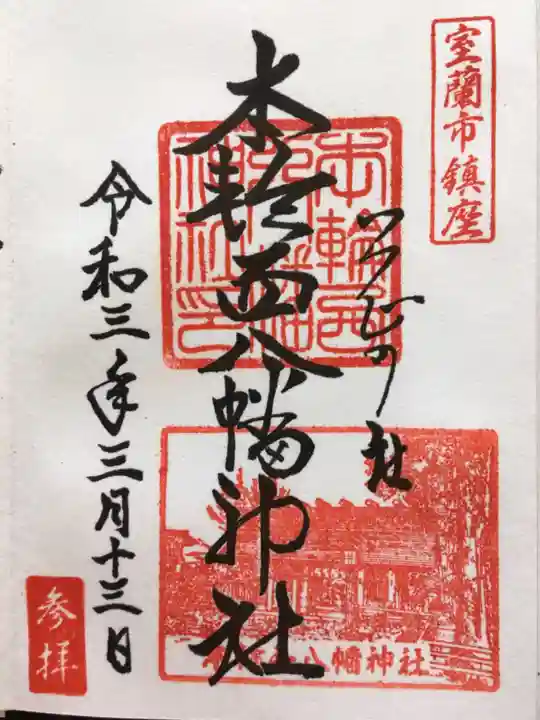 室蘭市鎮座
つつじの社
本輪西八幡神社
本輪西八幡神社印
八幡神社
令和三年三月十三日
参拝